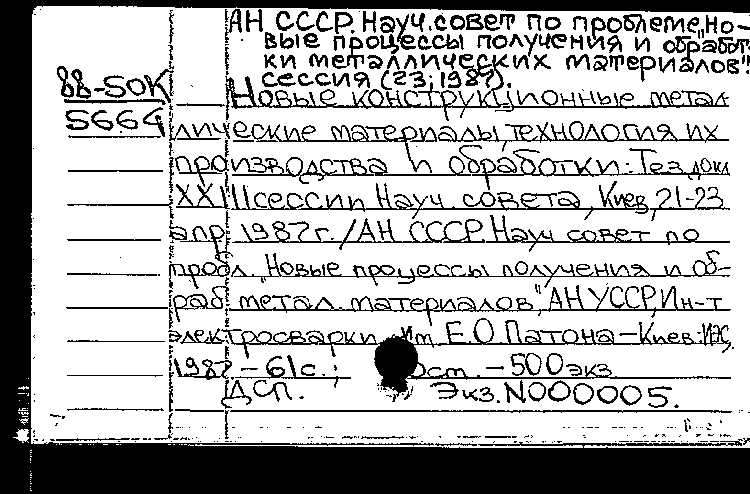 АН СССР. Науч. совет по проблеме „Но-
вые процессы получения и обработ
ки металлических материалов".
сессия (23; 1987).
88-5OK
5664
Новые конструкционные метал
лические материалы, технология их
производства и обработки: Тез докл
XXIII сессии Науч. совета, Киев, 21-23
апр 1987г. / АН СССР. Науч совет по
пробл. „Новые процессы получения и об-
раб метал. материалов", АН УССР, Ин-т
электросварки им Е.О Патона — Киев: ИЭС,
1987 — 61с.; — 500 экз.
ДСП. Экз. N000005.